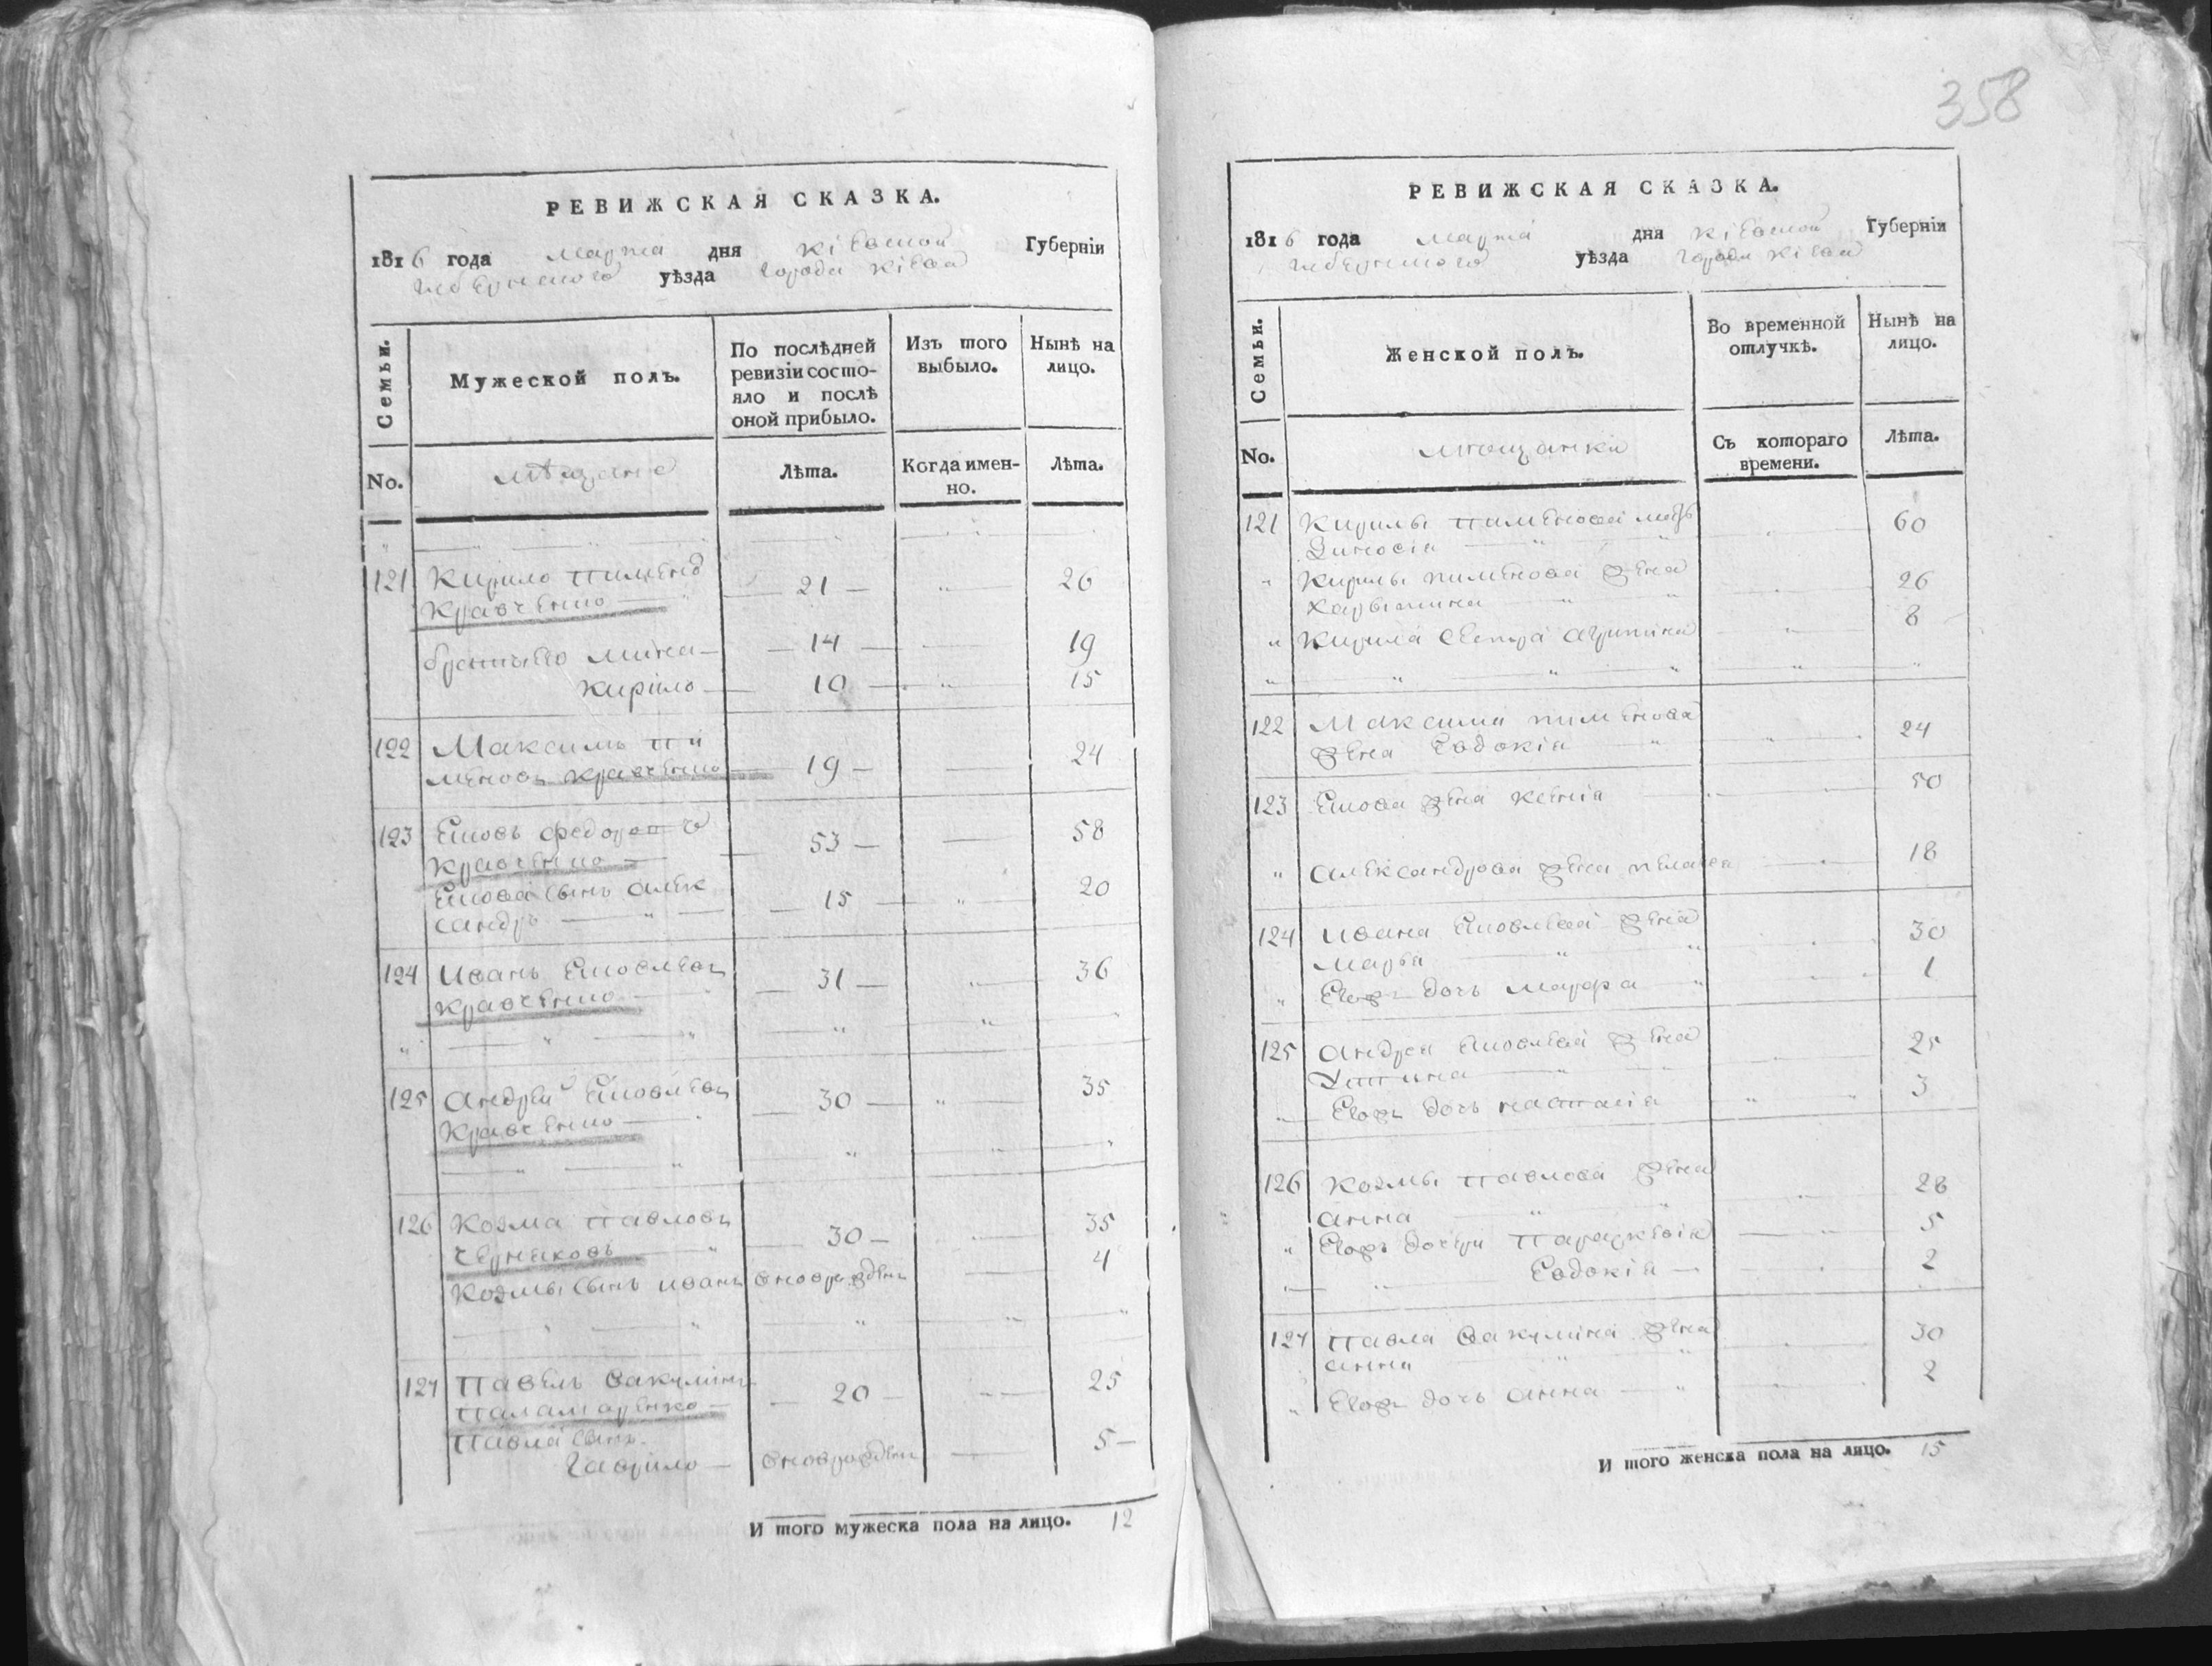 РЕВИЖСКАЯ СКАЗКА.
1816 года марта дня Кіевской Губерніи
губернского уѣзда города Кіева
Семьи.
Мужеской полъ.
По послѣдней ревизіи состояло и послѣ оной прибыло.
Изъ того выбыло.
Нынѣ на лицо.
No.
мѣщане
Лѣта.
Когда именно.
Лѣта.
121 Кирило Пименов
Кравченко 21 26
братья его Мина 14 19
Кирило 10 15
122 Максимъ Пи
меновъ Кравченко 19 24
123 Яковъ Федоров
Кравченко 53 58
Якова сынъ Алек
сандръ 15 20
124 Иванъ Яковлевъ
Кравченко 31 36
125 Андрей Яковлевъ
Кравченко 30 35
126 Козма Павловъ
Черняковъ 30 35
Козмы сынъ Иванъ вноврожденъ 4
127 Павелъ Вакулинъ
Паламаренко 20 25
Павла сынъ
Гаврило вноврожденъ 5
И того мужеска пола на лицо. 12
358
РЕВИЖСКАЯ СКАЗКА.
1816 года марта дня Кіевской Губерніи
губернского уѣзда города Кіева
Семьи.
Женской полъ.
Во временной отлучкѣ.
Нынѣ на лицо.
No.
мещанки
Съ котораго времени.
Лѣта.
121 Кирилы Пименова мать
60
Кирилы Пименова жена
Харытина 26
Кирила сестра Агрипина 8
122 Максима Пименова
жена Евдокія 24
123 Якова жена Ксенія 50
Александрова жена Пелагея 18
124 Ивана Яковлева жена
Марья 30
Евож дочь Марфа 1
125 Андрея Яковлева жена
Устина 25
Евож дочь Настасія 3
126 Козмы Павлова жена
Анна 28
Евож дочери Параскевія 5
Евдокія 2
127 Павла Вакулина жена
Анна 30
Евож дочь Анна 2
И того женска пола на лицо. 15